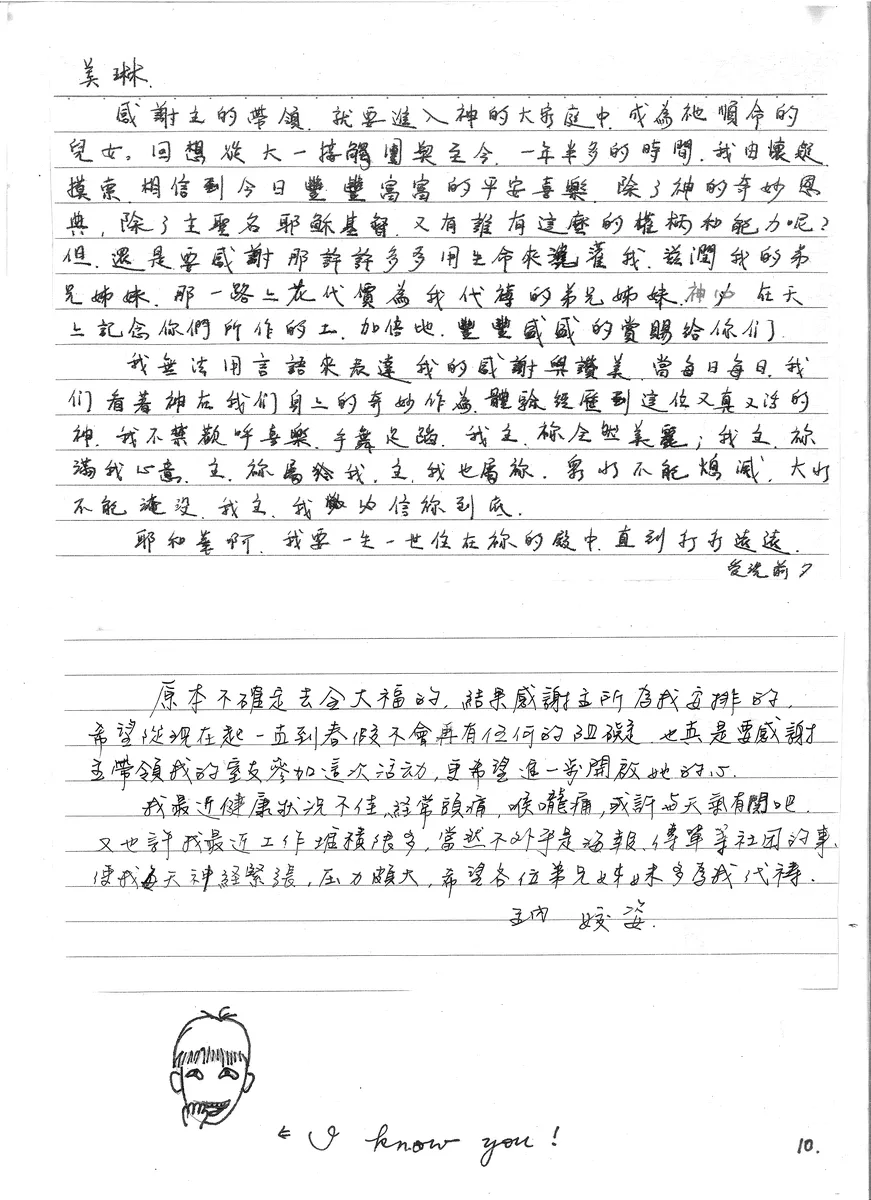 美琳.
感謝主的帶領. 就要進入神的大家庭中. 成為祂順命的
兒女。回想從大一接觸團契至今. 一年半多的時間. 我由懷疑.
摸索. 相信到今日豐豐富富的平安喜樂. 除了神的奇妙恩
典, 除了主聖名耶穌基督. 又有誰有這麼的權柄和能力呢?
但. 還是要感謝那許許多多用生命來澆灌我. 滋潤我的弟
兄姊妹. 那一路上花代價為我代禱的弟兄姊妹. 神必在天
上記念你們所作的工. 加倍地. 豐豐盛盛的賞賜給你们.
我無法用言語來表達我的感謝與讚美. 當每日每日. 我
们看著神在我们身上的奇妙作為. 體驗經歷到這位又真又活的
神. 我不禁歡呼喜樂. 手舞足蹈. 我主. 祢全然美麗; 我主. 祢
滿我心意. 主. 祢屬於我. 主. 我也屬祢. 眾水不能熄滅. 大水
不能淹沒. 我主. 我必信祢到底.
耶和華啊. 我要一生一世住在祢的殿中. 直到永永遠遠.
受洗前夕
原本不確定去今大福的. 結果感謝主所為我安排的.
希望從現在起一直到春假不會再有任何的阻礙. 也真是要感謝
主帶領我的室友參加這次活动, 更希望進一步開啟她的心.
我最近健康狀况不佳, 經常頭痛, 喉嚨痛, 或許与天氣有関吧.
又也許我最近工作堆積很多, 當然不外乎是海報、傳單等社团的事.
使我每天神経緊張, 压力頗大, 希望各位弟兄姊妹多為我代禱.
主內 姣姿.
← I know you!
10.